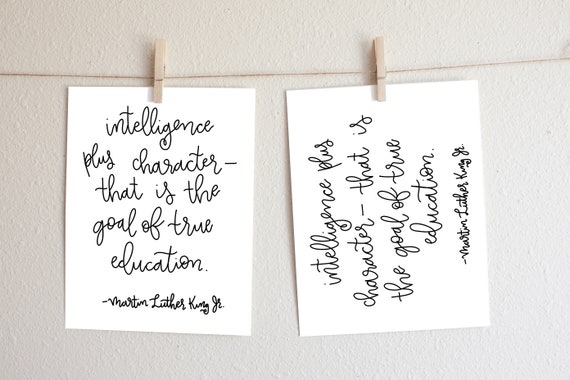 intelligence
plus character-
that is the
goal of true
education.
-Martin Luther King Jr.
intelligence plus
character- that is
the goal of true
education.
-Martin Luther King Jr.